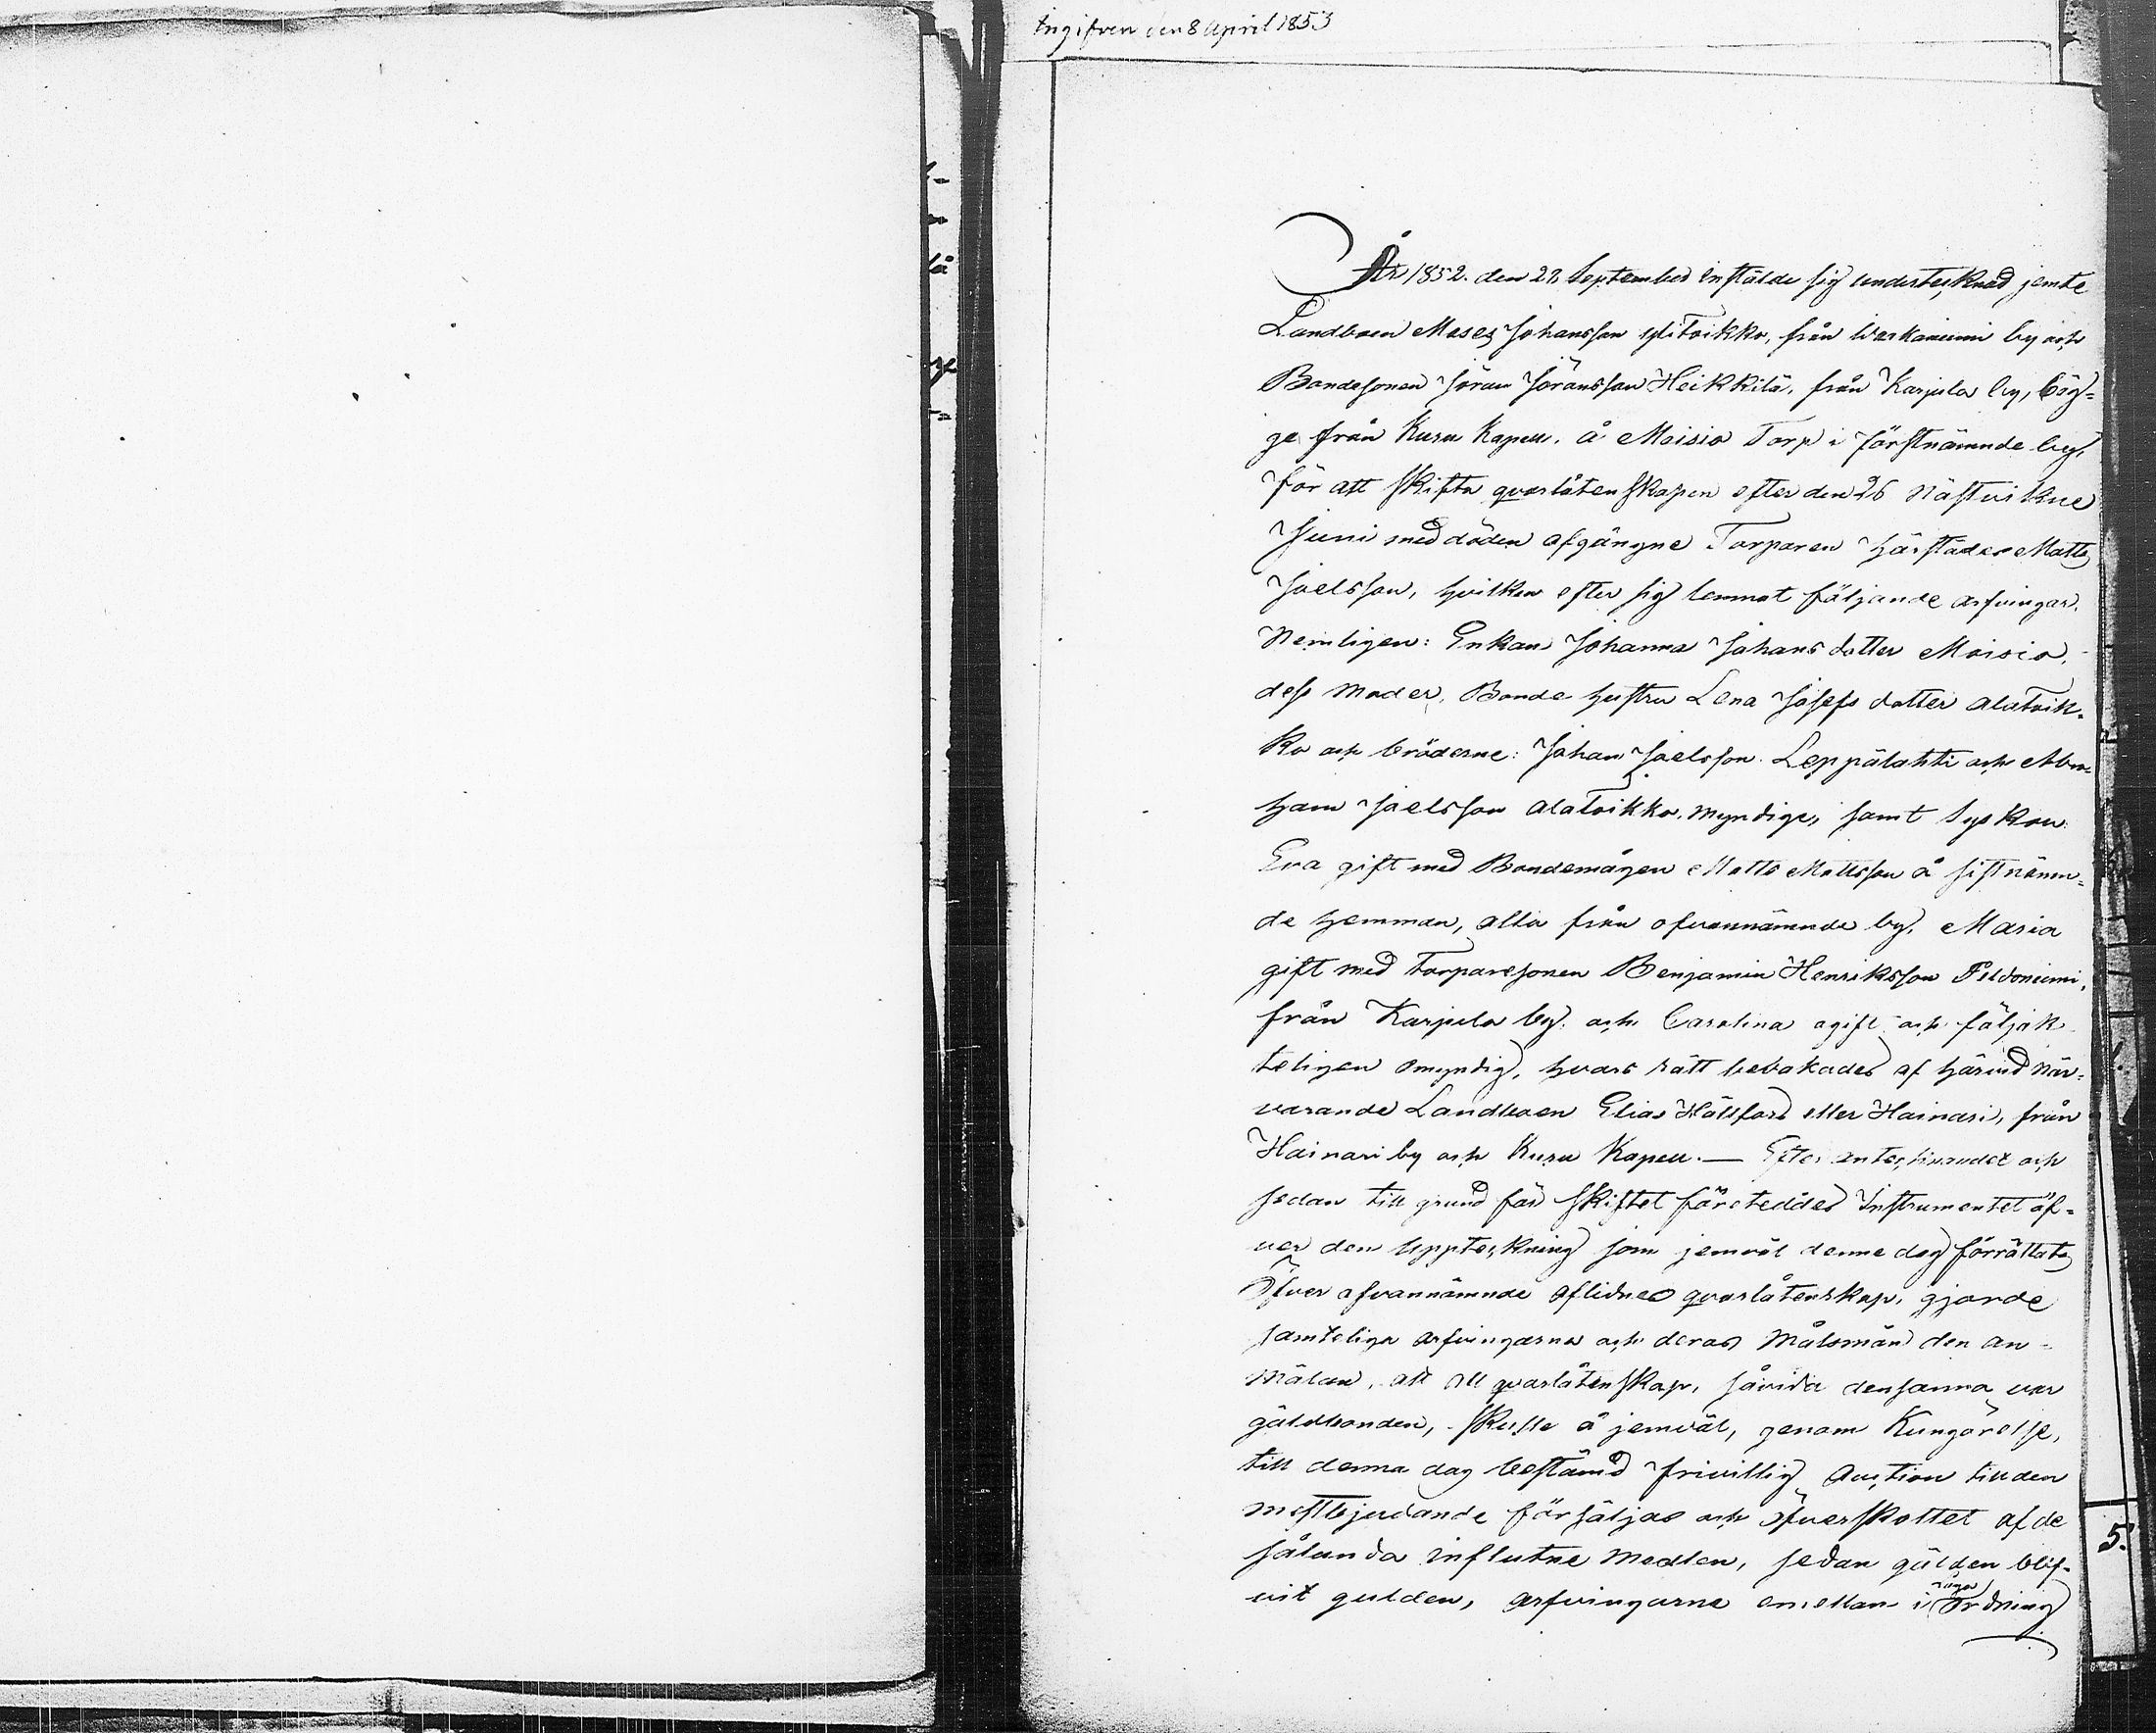 Ingifven den 8 April 1853
År 1852. den 28 September instälde sig undertecknad jemte
Landboen Moses Johansson YliToikko, från Warkaniemi by och
Bondesonen Jöran Göransson Heikkilä, från Karjula by, bäg-
ge från Kuru Kapell. å Moisio Torp i förstnämnde by,
för att skifta qvarlåtenskapen efter den 26 nästvikne
Juni med döden afgångne Torparen härstädes Matts
Joelsson, hvilken efter sig lemnat följande arfvingar.
Nemligen: Enkan Johanna Johansdotter Moisio,
dess moder, Bonde hustru Lena Josefsdotter AlaToik-
ko och bröderne: Johan Joelsson Leppälahti och Abra-
ham Joelsson AlaToikko, myndige, samt Syskon
Eva gift med Bondemågen Matts Mattsson å sistnämn-
de hemman, alla från ofvannämnde by, Maria
gift med Torparesonen Benjamin Henriksson Peldoniemi,
från Karjula by. och Carolina ogift och följak-
teligen omyndig, hvars rätt bevakades af härvid när-
varande Landboen Elias Hällfors eller Hainari, från
Hainari by och Kuru Kapell. — Efter antecknandet och
sedan till grund för skiftet företeddes Instrumentet öf-
ver den Uppteckning som jemväl denne dag förrättats
Öfver ofvannämnde aflidnes qvarlåtenskap, gjorde
samtelige arfvingarna och deras Målsmän den an-
mälan, att all qvarlåtenskap, såvida densamma var
gäldbonden, skulle å jemväl, genom Kungörelse,
till denna dag bestämd frivillig Auction till den
mestbjudande försäljas och Öfverskottet af de
sålunda influtne medlen, sedan gälden blif-
vit gulden, arfvingarne emellan i Ordning
5.